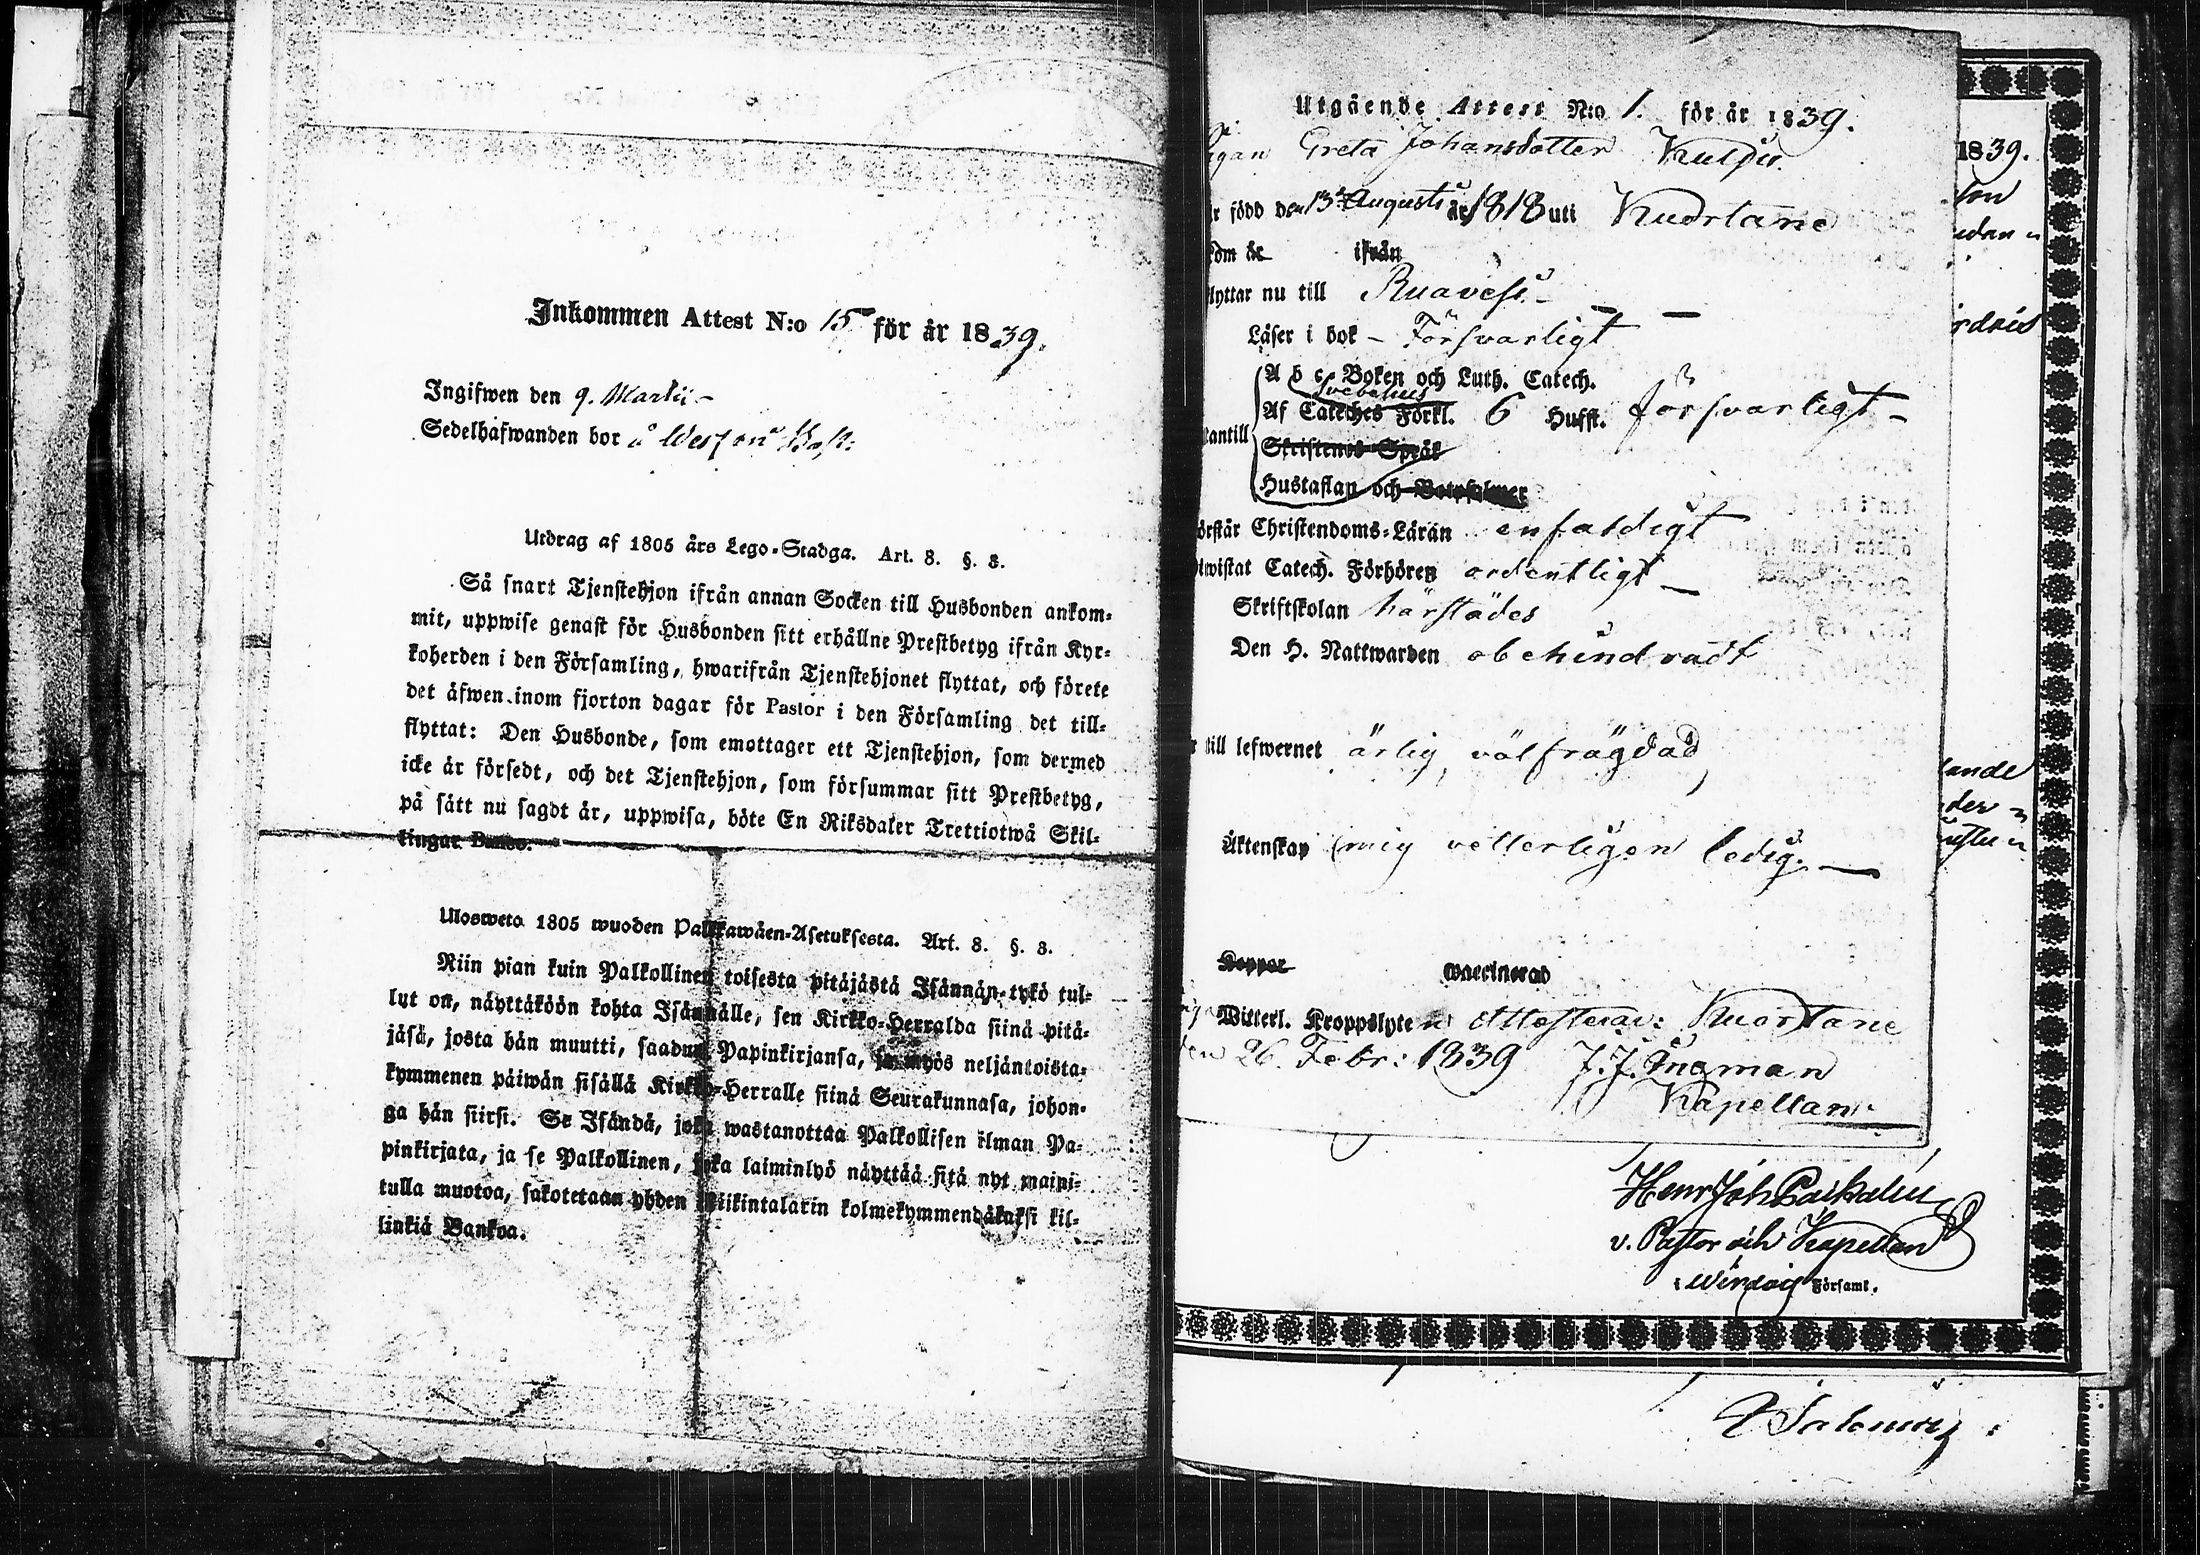 Inkommen Attest N:o 15 för år 1839.
Ingifwen den 9. Martii –
Sedelhafwanden bor å
Utdrag af 1805 års Lego-Stadga. Art. 8. §. 3.
Så snart Tjenstehjon ifrån annan Socken till Husbonden ankom-
mit, uppwise genast för Husbonden sitt erhållne Prestbetyg ifrån Kyr-
koherden i den Församling, hwarifrån Tjenstehjonet flyttat, och förete
det äfwen inom fjorton dagar för Pastor i den Församling det till-
flyttat: Den Husbonde, som emottager ett Tjenstehjon, som dermed
icke är försedt, och det Tjenstehjon, som försummar sitt Prestbetyg,
på sätt nu sagdt är, uppwisa, böte En Riksdaler Trettiotwå Skil-
lingar Banco.
Ulosweto 1805 wuoden Palkkawäen-Asetuksesta. Art. 8. §. 3.
Niin pian kuin Palkollinen toisesta pitäjästä Isännän tykö tul-
lut on, näyttäköön kohta Isännälle, sen Kirkko-Herralda siinä pitä-
jäsä, josta hän muutti, saadun Papinkirjansa, ja myös neljäntoista-
kymmenen päiwän sisällä Kirkko-Herralle siinä Seurakunnasa, johon-
ga hän siirsi. Se Isändä, joka wastanottaa Palkollisen ilman Pa-
pinkirjata, ja se Palkollinen, joka laiminlyö näyttää sitä nyt maini-
tulla muotoa, sakotetaan yhden Riikintalarin kolmekymmendäkaksi kil-
linkiä Bankoa.
Utgående Attest N:o 1. för år 1839.
Greta Johansdotter
född den 13 Augusti år 1818 uti Kuortane
år ifrån
flyttar nu till Ruovesi –
Läser i bok – Försvarligt
A b c-Boken och Luth. Catech.
Af Svebelius Cateches Förkl. 6 Hufst. försvarligt –
Skriftenes Språk
Hustaflan och Botpsalmer
Förstår Christendoms-Läran enfaldigt
Catech. Förhören ordentligt –
Skriftskolan härstädes
Den H. Nattwarden obehindradt
till lefwernet ärlig, välfrägdad,
Äktenskap mig vetterligen ledig. –
Koppor waccinerad
Witterl. Kroppslyten Attesterar: Kuortane
den 26. Febr: 1839 J. J. Ingman
Kapellan.
1839.
v. Pastor och Kapellan
i Wirdois Församl.